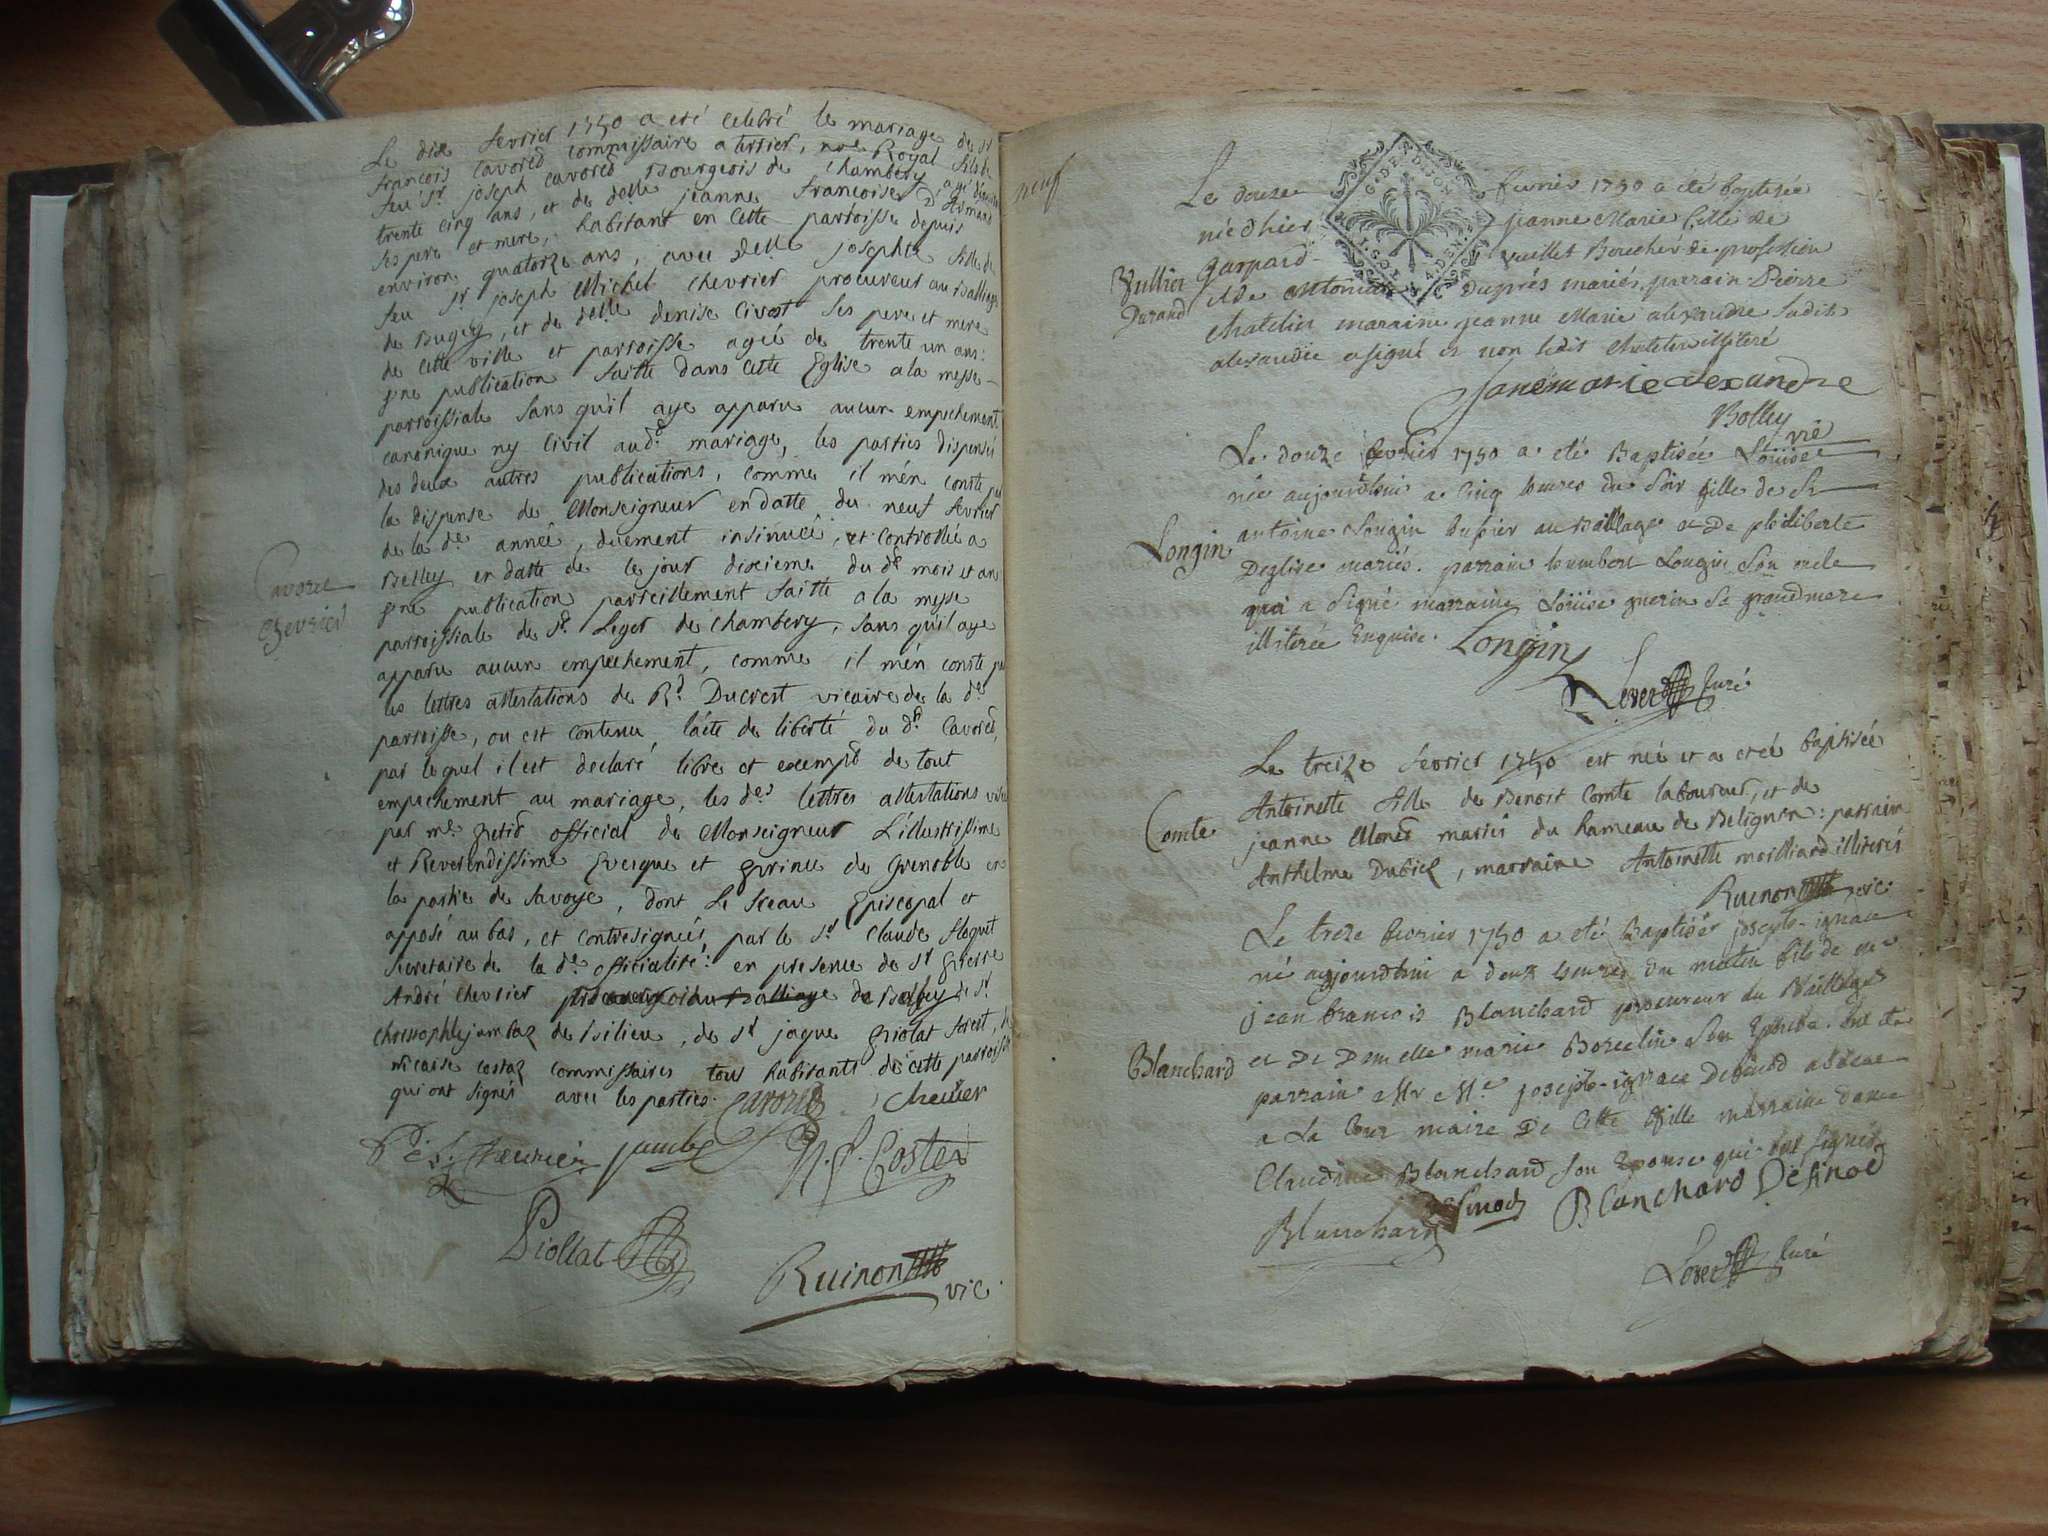 Le dix fevrier 1750 a eté celebré le mariage de sr
francois Cavored commissaire a terrier, nore Royal fils de
feu Sr joseph Cavored Bourgeois de Chambery agé d'environ
trente cinq ans, et de delle jeanne francoise D'Armand
ses pere et mere, habitant en Cette parroisse depuis
environ quatorze ans, avec delle josephte fille de
feu Sr joseph Michel Chevrier procureur au Balliage
de Bugey, et de delle denise Civost ses pere et mere
de cette ville et parroisse agée de trente un ans:
publication faitte dans Cette Eglise a la messe
parroissiale sans qu'il aye apparu aucun empechement
canonique ny Civil aud. mariage, les parties dispensés
des deux autres publications, comme il m'en conste par
la dispense de Monseigneur en datte du neuf fevrier
de la de année, duement insinuée, et controllée a
Belley en datte de le jour dixieme du d. mois et an
publication pareillement faitte a la messe
parroissiale de St Leger de Chambery, sans qu'il aye
apparu aucun empechement, comme il m'en conste par
les lettres attestations de Rd Ducrest vicaire de la de
parroisse, ou est contenu l'acte de liberté du dt Cavored,
par lequel il est declaré libre et exempt de tout
empechement au mariage, les des lettres attestations visées
par me petit official de Monseigneur L'illustrissime
et Reverendissime Evesque et prince de Grenoble en
la partie de Savoye, dont le sceau Episcopal et
apposé au bas, et contresignées par le Sr Claude floquet
secretaire de la de officialité: en presence de Sr pierre
André Chevrier procureur au Balliage de Bugey de Sr
Christophle jambaz de Billieu, de Sr jaque piolat forest, de
nicaise costaz commissaires tous habitants de cette parroisse
qui ont signés avec les parties. Cavored Chevrier
P. A. Chevrier jambaz N. f. Costaz
Piollat
Ruinon vic.
Cavored
Chevrier
neuf
G. DE DIJON
Le douze fevrier 1750 a été baptisée
née d'hier jeanne Marie fille de
Gaspard vuillet Boucher de profession
et de antoinette duprés mariés, parrain Pierre
Chatelin marraine jeanne Marie alexandre ladite
alexandre a signé et non ledit Chatelin illiteré
Vullier
Durand
Janemarie alexandre
Bolley
vic
Le douze fevrier 1750 a eté Baptisée Loüise
née aujourdhui a cinq heures du soir fille de Sr
antoine Longin huissier au Baillage et De philiberte
Deglise mariés. parrain humbert Longin son oncle
qui a signé marraine Loüise guerin sa grandmere
illiterée Enquise. Longin
Longin
curé
Le treize fevrier 1750 est née et a eteé baptisée
Antoinette fille de Benoit Comte laboureur, et de
jeanne Monet mariés du hameau de Belignin: parrain
Anthelme Dubiez, marraine Antoinette morlliard illiterés
Comte
Ruinon vic.
Le treze fevrier 1750 a eté Baptisé joseph-ignace
né aujourdhui a deux heures du matin fils de me
jean francois Blanchard procureur du Bailliage
et De Dmelle marie Borcelin son Epouse. ont eté
parrain Mr Me joseph-ignace Definod advocat
a la Cour maire De Cette Ville marraine dame
Claudine Blanchard son Epouse qui ont signés
Blanchard
Blanchard Definod Blanchard Definod
curé